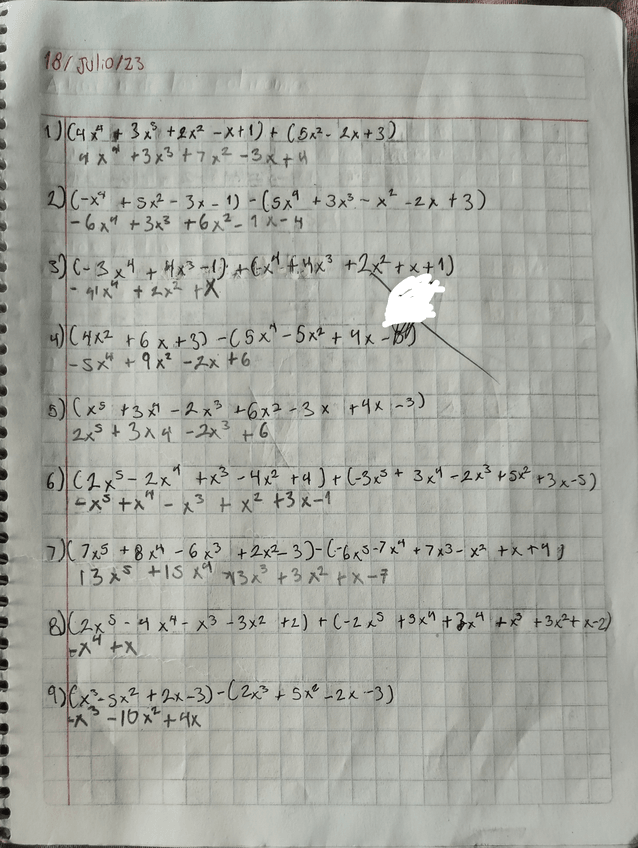 18/Julio/23
1) (4x⁴ + 3x⁵ + 2x² - x + 1) + (5x² - 2x + 3)
4x⁴ + 3x³ + 7x² - 3x + 4
2) (-x⁴ + 5x² - 3x - 1) - (5x⁴ + 3x³ - x² - 2x + 3)
-6x⁴ + 3x³ + 6x² - 1x - 4
3) (-3x⁴ + 4x³ - 1) + (-x⁴ + 4x³ + 2x² + x + 1)
-4x⁴ + 2x² + x
4) (4x² + 6x + 3) - (5x⁴ - 5x² + 4x -
-5x⁴ + 9x² - 2x + 6
5) (x⁵ + 3x⁴ - 2x³ + 6x² - 3x + 4x - 3)
2x⁵ + 3x4 - 2x³ + 6
6) (2x⁵ - 2x⁴ + x³ - 4x² + 4) + (-3x⁵ + 3x⁴ - 2x³ + 5x² + 3x - 5)
-x⁵ + x⁴ - x³ + x² + 3x - 1
7) (7x⁵ + 8x⁴ - 6x³ + 2x² - 3) - (-6x⁵ - 7x⁴ + 7x³ - x² + x + 4)
13x⁵ + 15x⁴ - 13x³ + 3x² + x - 7
8) (2x⁵ - 4x⁴ - x³ - 3x² + 2) + (-2x⁵ + 3x⁴ + 3x⁴ + x³ + 3x² + x - 2)
-x⁴ + x
9) (x³ - 5x² + 2x - 3) - (2x³ + 5x² - 2x - 3)
-x³ - 10x² + 4x